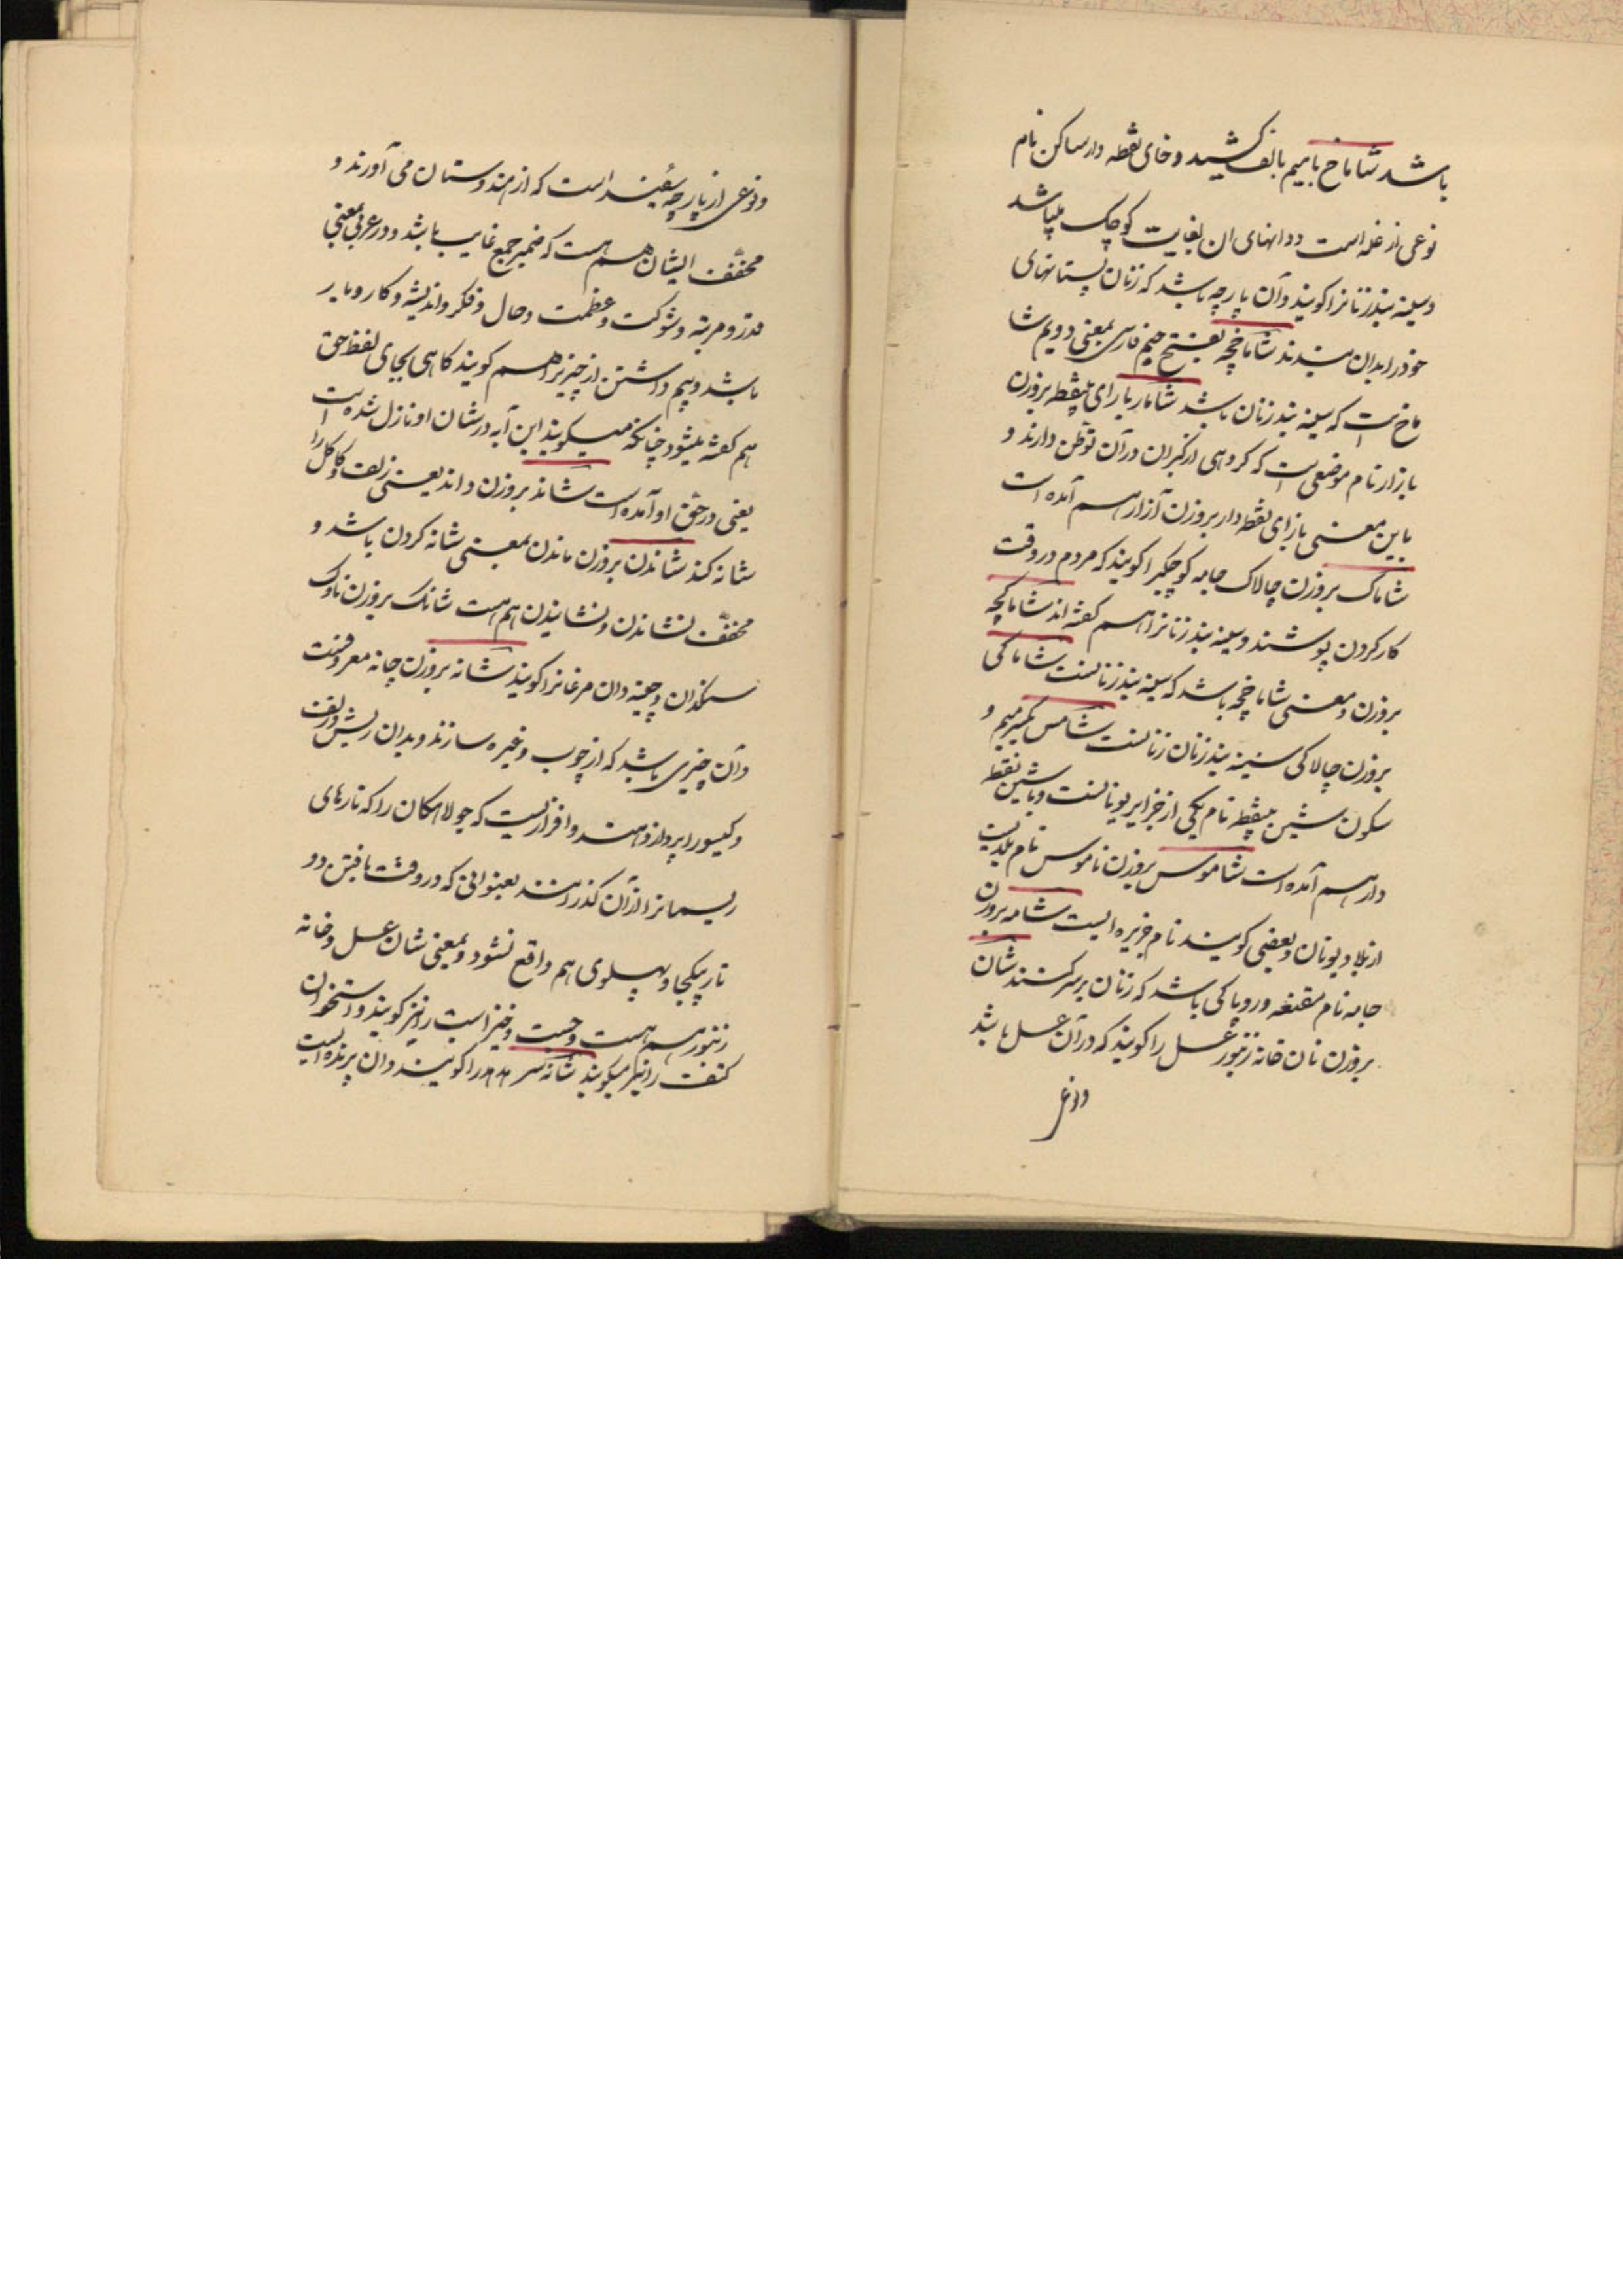 باشد شاماخ بامیم بالف کشیده و خای نقطه دار ساکن نام
نوعی از غله است و دانهای ان بغایت کوچک میباشد
و سینه بند زنانرا کویند و آن پارچه باشد که زنان پستانهای
خود را بدان بندند شاماخچه بفتح جیم فارسی بمعنی دویم شا
ماخ است که سینه بند زنان باشد شامار با رای بینقطه بروزن
بازار نام موضعی است که کروهی از کبران در آن توطن دارند و
باین معنی بازای نقطه دار بروزن آزار هم آمده است
شاماک بروزن چالاک جامه کوچکیرا کویند که مردم در وقت
کار کردن پوشند و سینه بند زنانرا هم کفته اند شاماکچه
بروزن و معنی شاماخچه باشد که سینه بند زنانست شاماکی
بروزن چالاکی سینه بند زنان زنانست شامس بکسر میم و
سکون شین بینقطه نام یکی از جزایر یونانست و باشین نقطه
دار هم آمده است شاموس بروزن ناموس نام بلدیست
از بلاد یونان و بعضی کویند نام جزیره ایست شامه بروزن
جامه نام مقنعه و روپاکی باشد که زنان بر سر کنند شان
بروزن نان خانه زنبور عسل را کویند که در آن عسل باشد
و نوعی از پارچه سفید است که از هندوستان می آورند و
مخفف ایشان هم هست که ضمیر جمع غایب باشد و در عربی بمعنی
قدر و مرتبه و شوکت و عظمت و حال و فکر و اندیشه و کار و بار
باشد و بیم داشتن از چیزیرا هم کویند کاهی بجای لفظ حق
هم کفته میشود چنانکه میکویند این آیه در شان او نازل شده است
یعنی در حق او آمده است شاند بروزن داند یعنی زلف و کاکل را
شانه کند شاندن بروزن ماندن بمعنی شانه کردن باشد و
مخفف نشاندن و نشانیدن هم هست شانک بروزن ناوک
سنکدان و چینه دان مرغانرا کویند شانه بروزن چانه معروفست
و آن چیزی باشد که از چوب و غیره سازند و بدان ریش و زلف
و کیسو را پرداز دهند و افزاریست که جولاهکان را که تارهای
ریسمانرا از آن کذرانند بعنوانی که در وقت بافتن دو
تار یکجا و پهلوی هم واقع نشود و بمعنی شان عسل و خانه
زنبور هم هست و جست و خیز اسب را نیز کویند و استخوان
کتف را نیز میکویند شانه سر را کویند و ان پرنده ایست